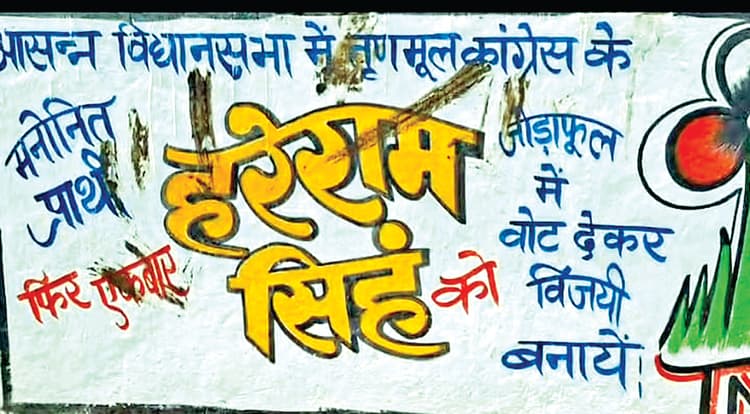 आसन्न विधानसभा में तृणमूल कांग्रेस के
मनोनित
प्रार्थी
फिर एकबार
हरेराम
सिहं
को
जोड़ाफूल
में
वोट देकर
विजयी
बनायें।